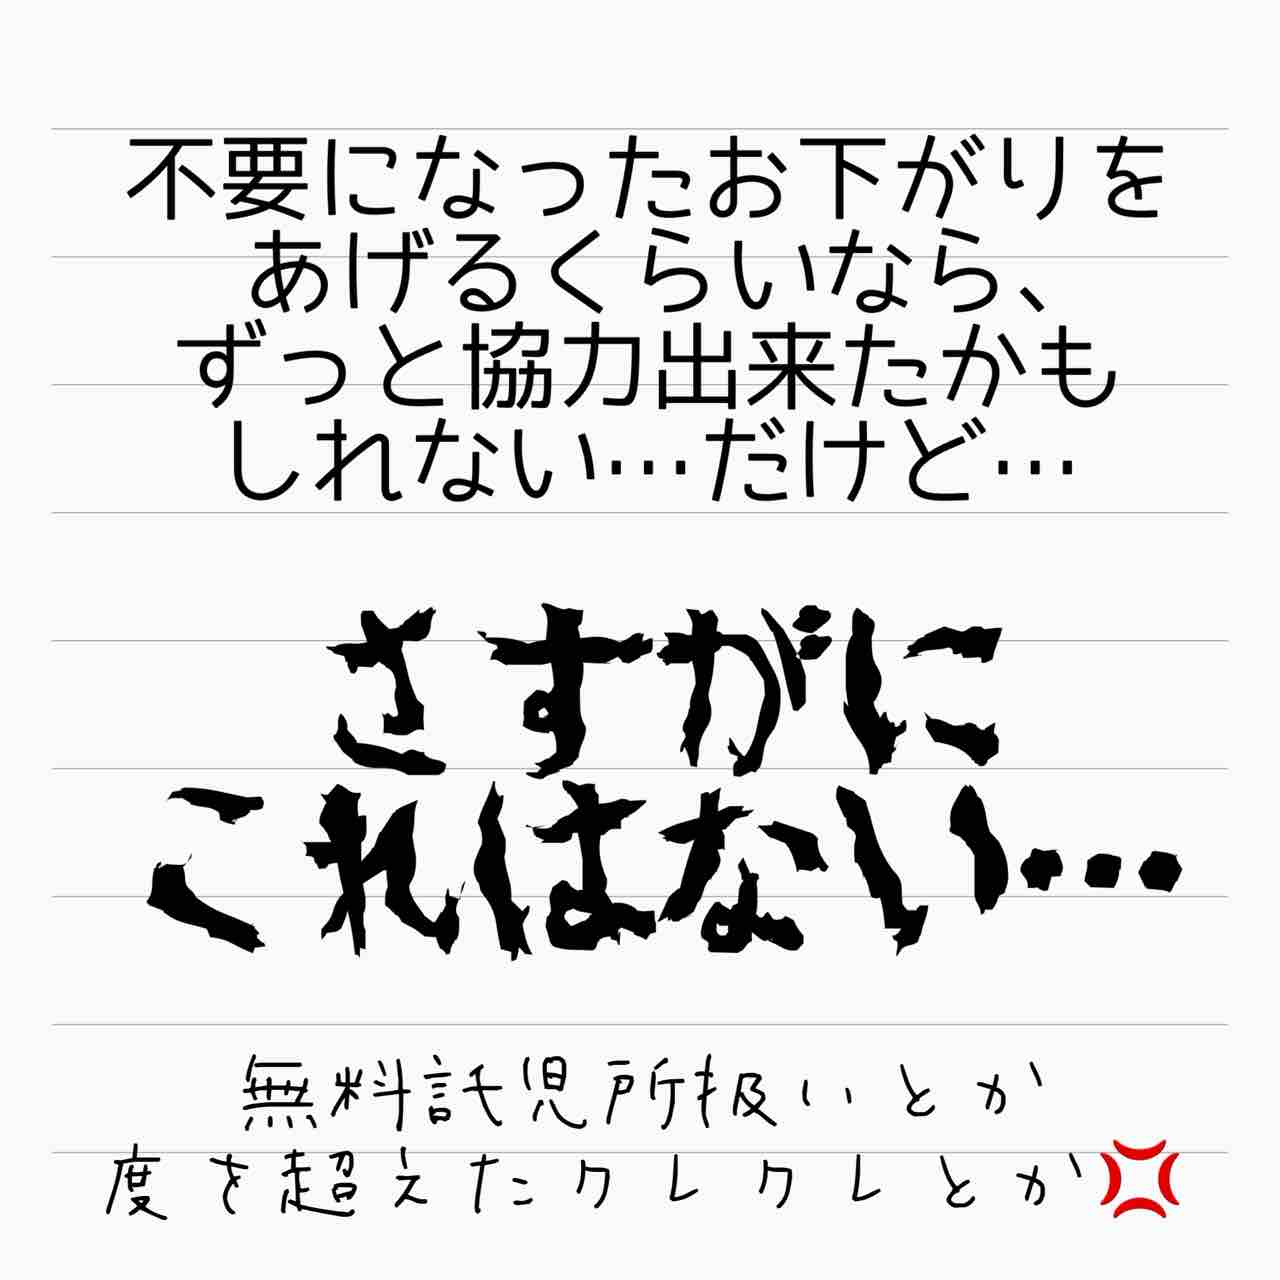 不要になったお下がりを
あげるくらいなら、
ずっと協力出来たかも
しれない…だけど…
さすがに
これはない…
無料託児所扱いとか
度を超えたクレクレとか💢